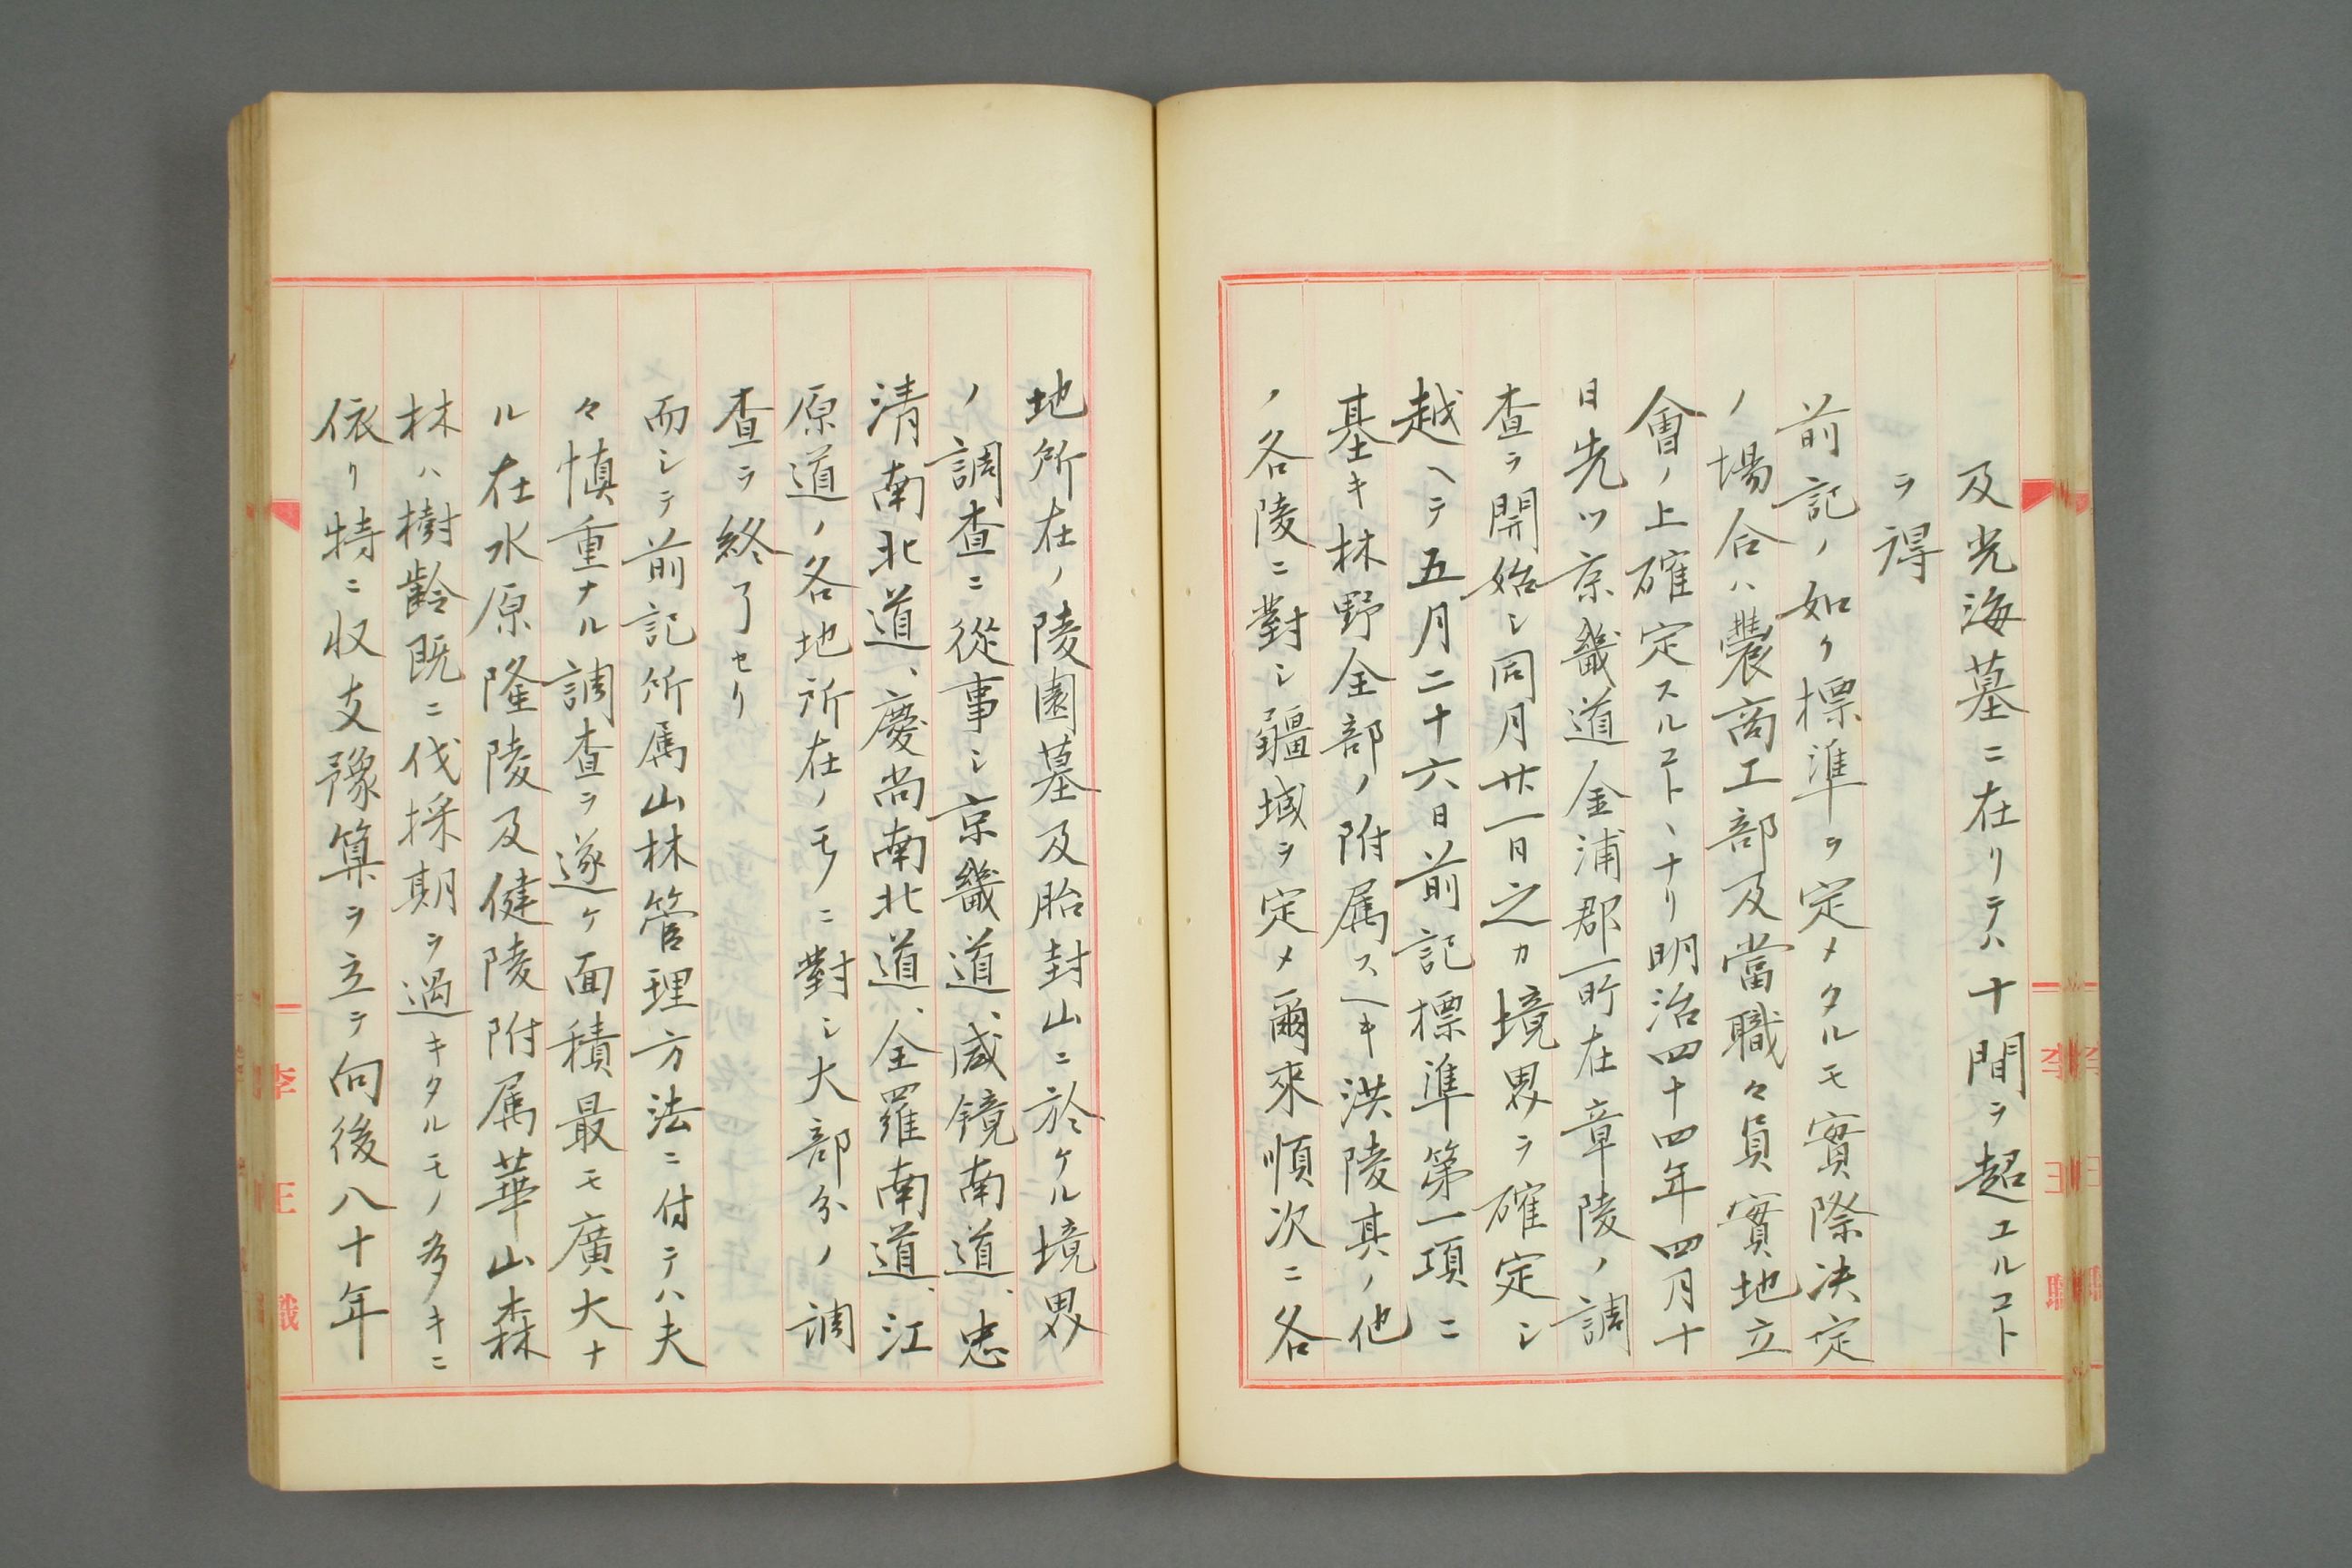 及光海墓ニ在リテハ十間ヲ超エルコト
ヲ得
前記ノ如ク標準ヲ定メタルモ實際決定
ノ場合ハ農商工部及當職々員實地立
會ノ上確定スルコトヽナリ明治四十四年四月十
日先ツ京畿道金浦郡所在章陵ノ調
査ヲ開始シ同月廿一日之カ境界ヲ確定シ
越ヘテ五月二十六日前記標準第一項ニ
基キ林野全部ノ附属スヘキ洪陵其ノ他
ノ各陵ニ對シ疆域ヲ定メ爾來順次ニ各
地所在ノ陵園墓及胎封山ニ於ケル境界
ノ調査ニ從事シ京畿道、咸镜南道、忠
清南北道、慶尚南北道、全羅南道、江
原道ノ各地所在ノモノニ對シ大部分ノ調
査ヲ終了セリ
而シテ前記所属山林管理方法ニ付テハ夫
々慎重ナル調査ヲ遂ケ面積最モ廣大ナ
ル在水原隆陵及健陵附属華山森
林ハ樹齢既ニ伐採期ヲ過キタルモノ多キニ
依リ特ニ收支豫算ヲ立テ向後八十年
李王職